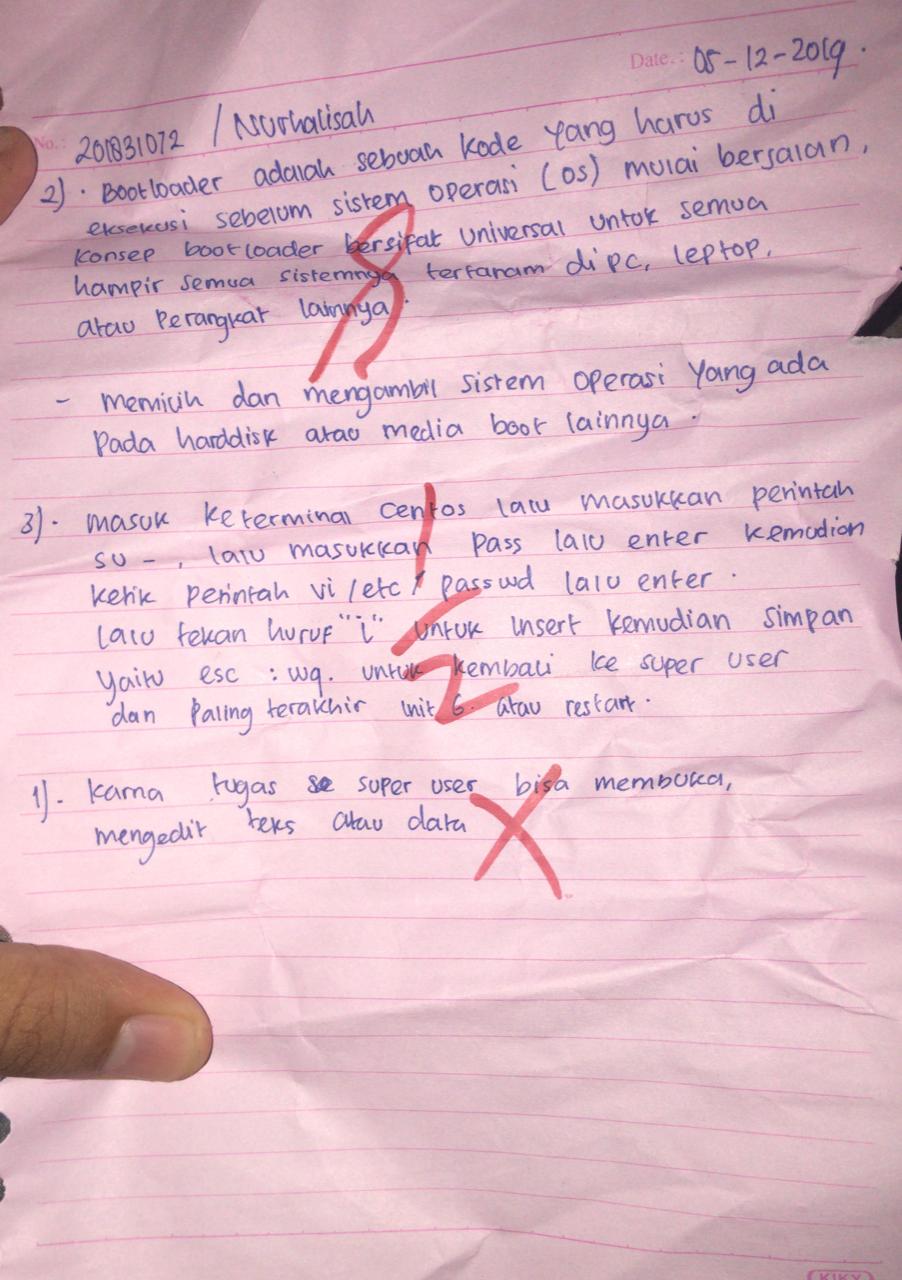 Date.: 05-12-2019.
No.: 201831072 / Nurhalisah
2). Bootloader adalah sebuah kode yang harus di
eksekusi sebelum sistem operasi (os) mulai bersalan,
konsep bootloader bersifat universal untuk semua
hampir semua sistemnya tertanam di pc, leptop,
atau Perangkat lainnya.
8
- memilih dan mengambil sistem operasi yang ada
Pada harddisk atau media boot lainnya.
3). masuk keterminal centos lalu masukkan perintah
su -, lalu masukkan pass lalu enter kemudian
ketik perintah vi /etc/passwd lalu enter.
lalu tekan huruf "i" untuk insert kemudian simpan
yaitu esc :wq. untuk kembali ke super user
dan Paling terakhir init 6. atau restart.
1). karna tugas se super user bisa membuka,
mengedit teks atau data
KIKY